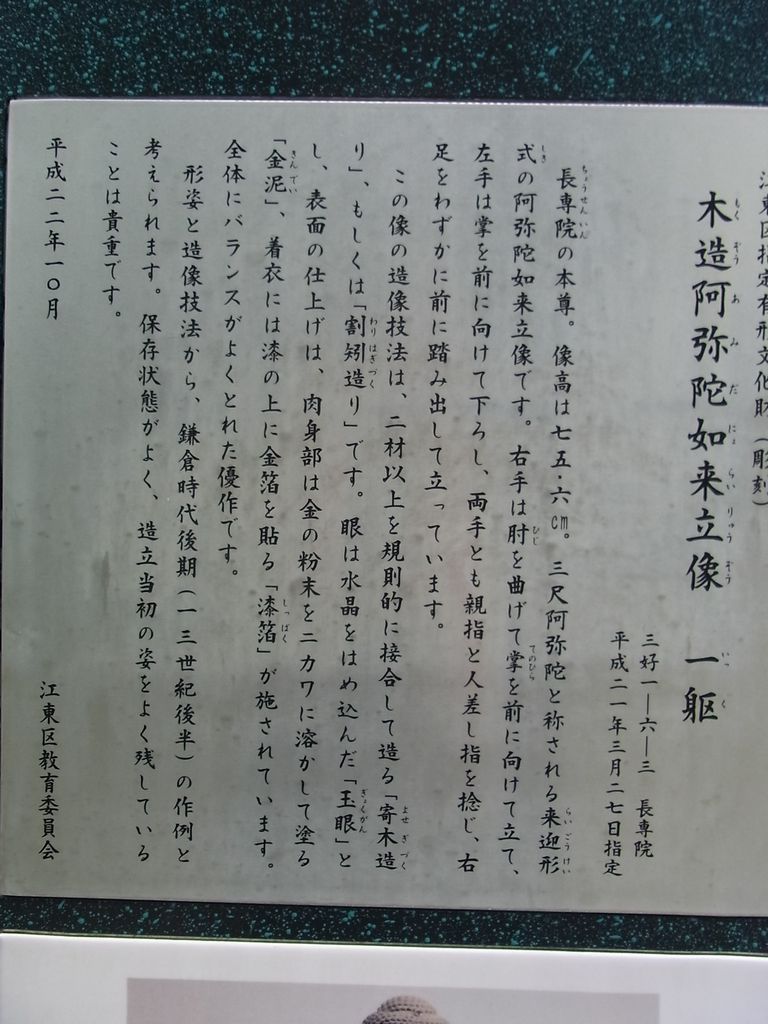 江東区指定有形文化財（彫刻）
木造阿弥陀如来立像　一躯
もくぞうあみだにょらいりゅうぞう　いっく
三好一―六―三　長専院
平成二一年三月二七日指定
長専院の本尊。像高は七五・六㎝。三尺阿弥陀と称される来迎形
ちょうせんいん　らいごうけい
式の阿弥陀如来立像です。右手は肘を曲げて掌を前に向けて立て、
しき　ひじ　てのひら
左手は掌を前に向けて下ろし、両手とも親指と人差し指を捻じ、右
足をわずかに前に踏み出して立っています。
この像の造像技法は、二材以上を規則的に接合して造る「寄木造
よせぎづく
り」、もしくは「割矧造り」です。眼は水晶をはめ込んだ「玉眼」と
わりはぎづく　ぎょくがん
し、表面の仕上げは、肉身部は金の粉末をニカワに溶かして塗る
「金泥」、着衣には漆の上に金箔を貼る「漆箔」が施されています。
きんでい　しっぱく
全体にバランスがよくとれた優作です。
形姿と造像技法から、鎌倉時代後期（一三世紀後半）の作例と
考えられます。保存状態がよく、造立当初の姿をよく残している
ことは貴重です。
平成二二年一〇月
江東区教育委員会